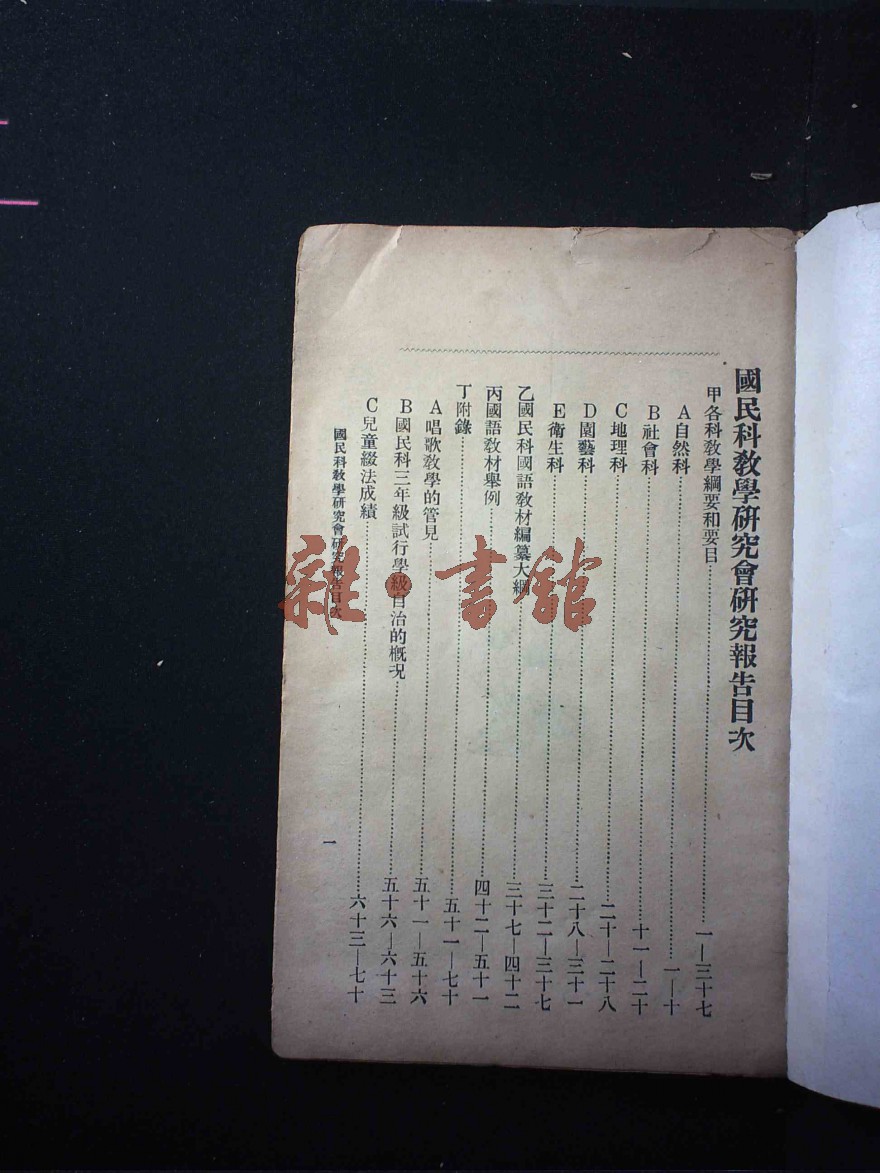 國民科教學研究會研究報告目次
甲各科教學綱要和要目…………一—三十七
A自然科…………一—十
B社會科…………十一—二十
C地理科…………二十—二十八
D園藝科…………二十八—三十一
E衛生科…………三十二—三十七
乙國民科國語教材編纂大綱…………三十七—四十二
丙國語教材舉例…………四十二—五十一
丁附錄…………五十一—七十
A唱歌教學的管見…………五十一—五十六
B國民科三年級試行學級自治的概况…………五十六—六十三
C兒童綴法成績…………六十三—七十
國民科教學研究會研究報告目次
一
雜·書館